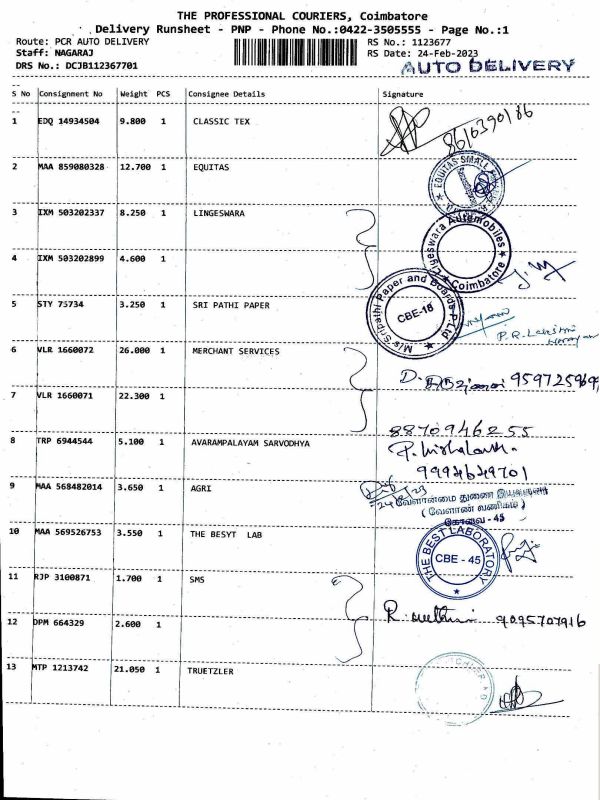 THE PROFESSIONAL COURIERS, Coimbatore
Delivery Runsheet - PNP - Phone No.:0422-3505555 - Page No.:1
Route: PCR AUTO DELIVERY RS No.: 1123677
Staff: NAGARAJ RS Date: 24-Feb-2023
DRS No.: DCJB112367701 AUTO DELIVERY
S No Consignment No Weight PCS Consignee Details Signature
1 EDQ 14934504 9.800 1 CLASSIC TEX
8616390186
2 MAA 859080328 12.700 1 EQUITAS
EQUITAS SMALL
3 IXM 503202337 8.250 1 LINGESWARA
Lingeswara Automobiles
Coimbatore
4 IXM 503202899 4.600 1
5 STY 75734 3.250 1 SRI PATHI PAPER
M/s Sripathi Paper and Boards P.Ltd
CBE-18
P.R. Lakshmi
Narayan
6 VLR 1660072 26.000 1 MERCHANT SERVICES
7 VLR 1660071 22.300 1
8870946255
8 TRP 6944544 5.100 1 AVARAMPALAYAM SARVODHYA
9994649701
9 MAA 568482014 3.650 1 AGRI
24/2/23
வேளாண்மை துணை இயக்குநர்
( வேளாண் வணிகம் )
கோவை - 45
10 MAA 569526753 3.550 1 THE BESYT LAB
THE BEST LABORATORY
CBE - 45
11 RJP 3100871 1.700 1 SMS
12 DPM 664329 2.600 1
9095707916
13 MTP 1213742 21.050 1 TRUETZLER